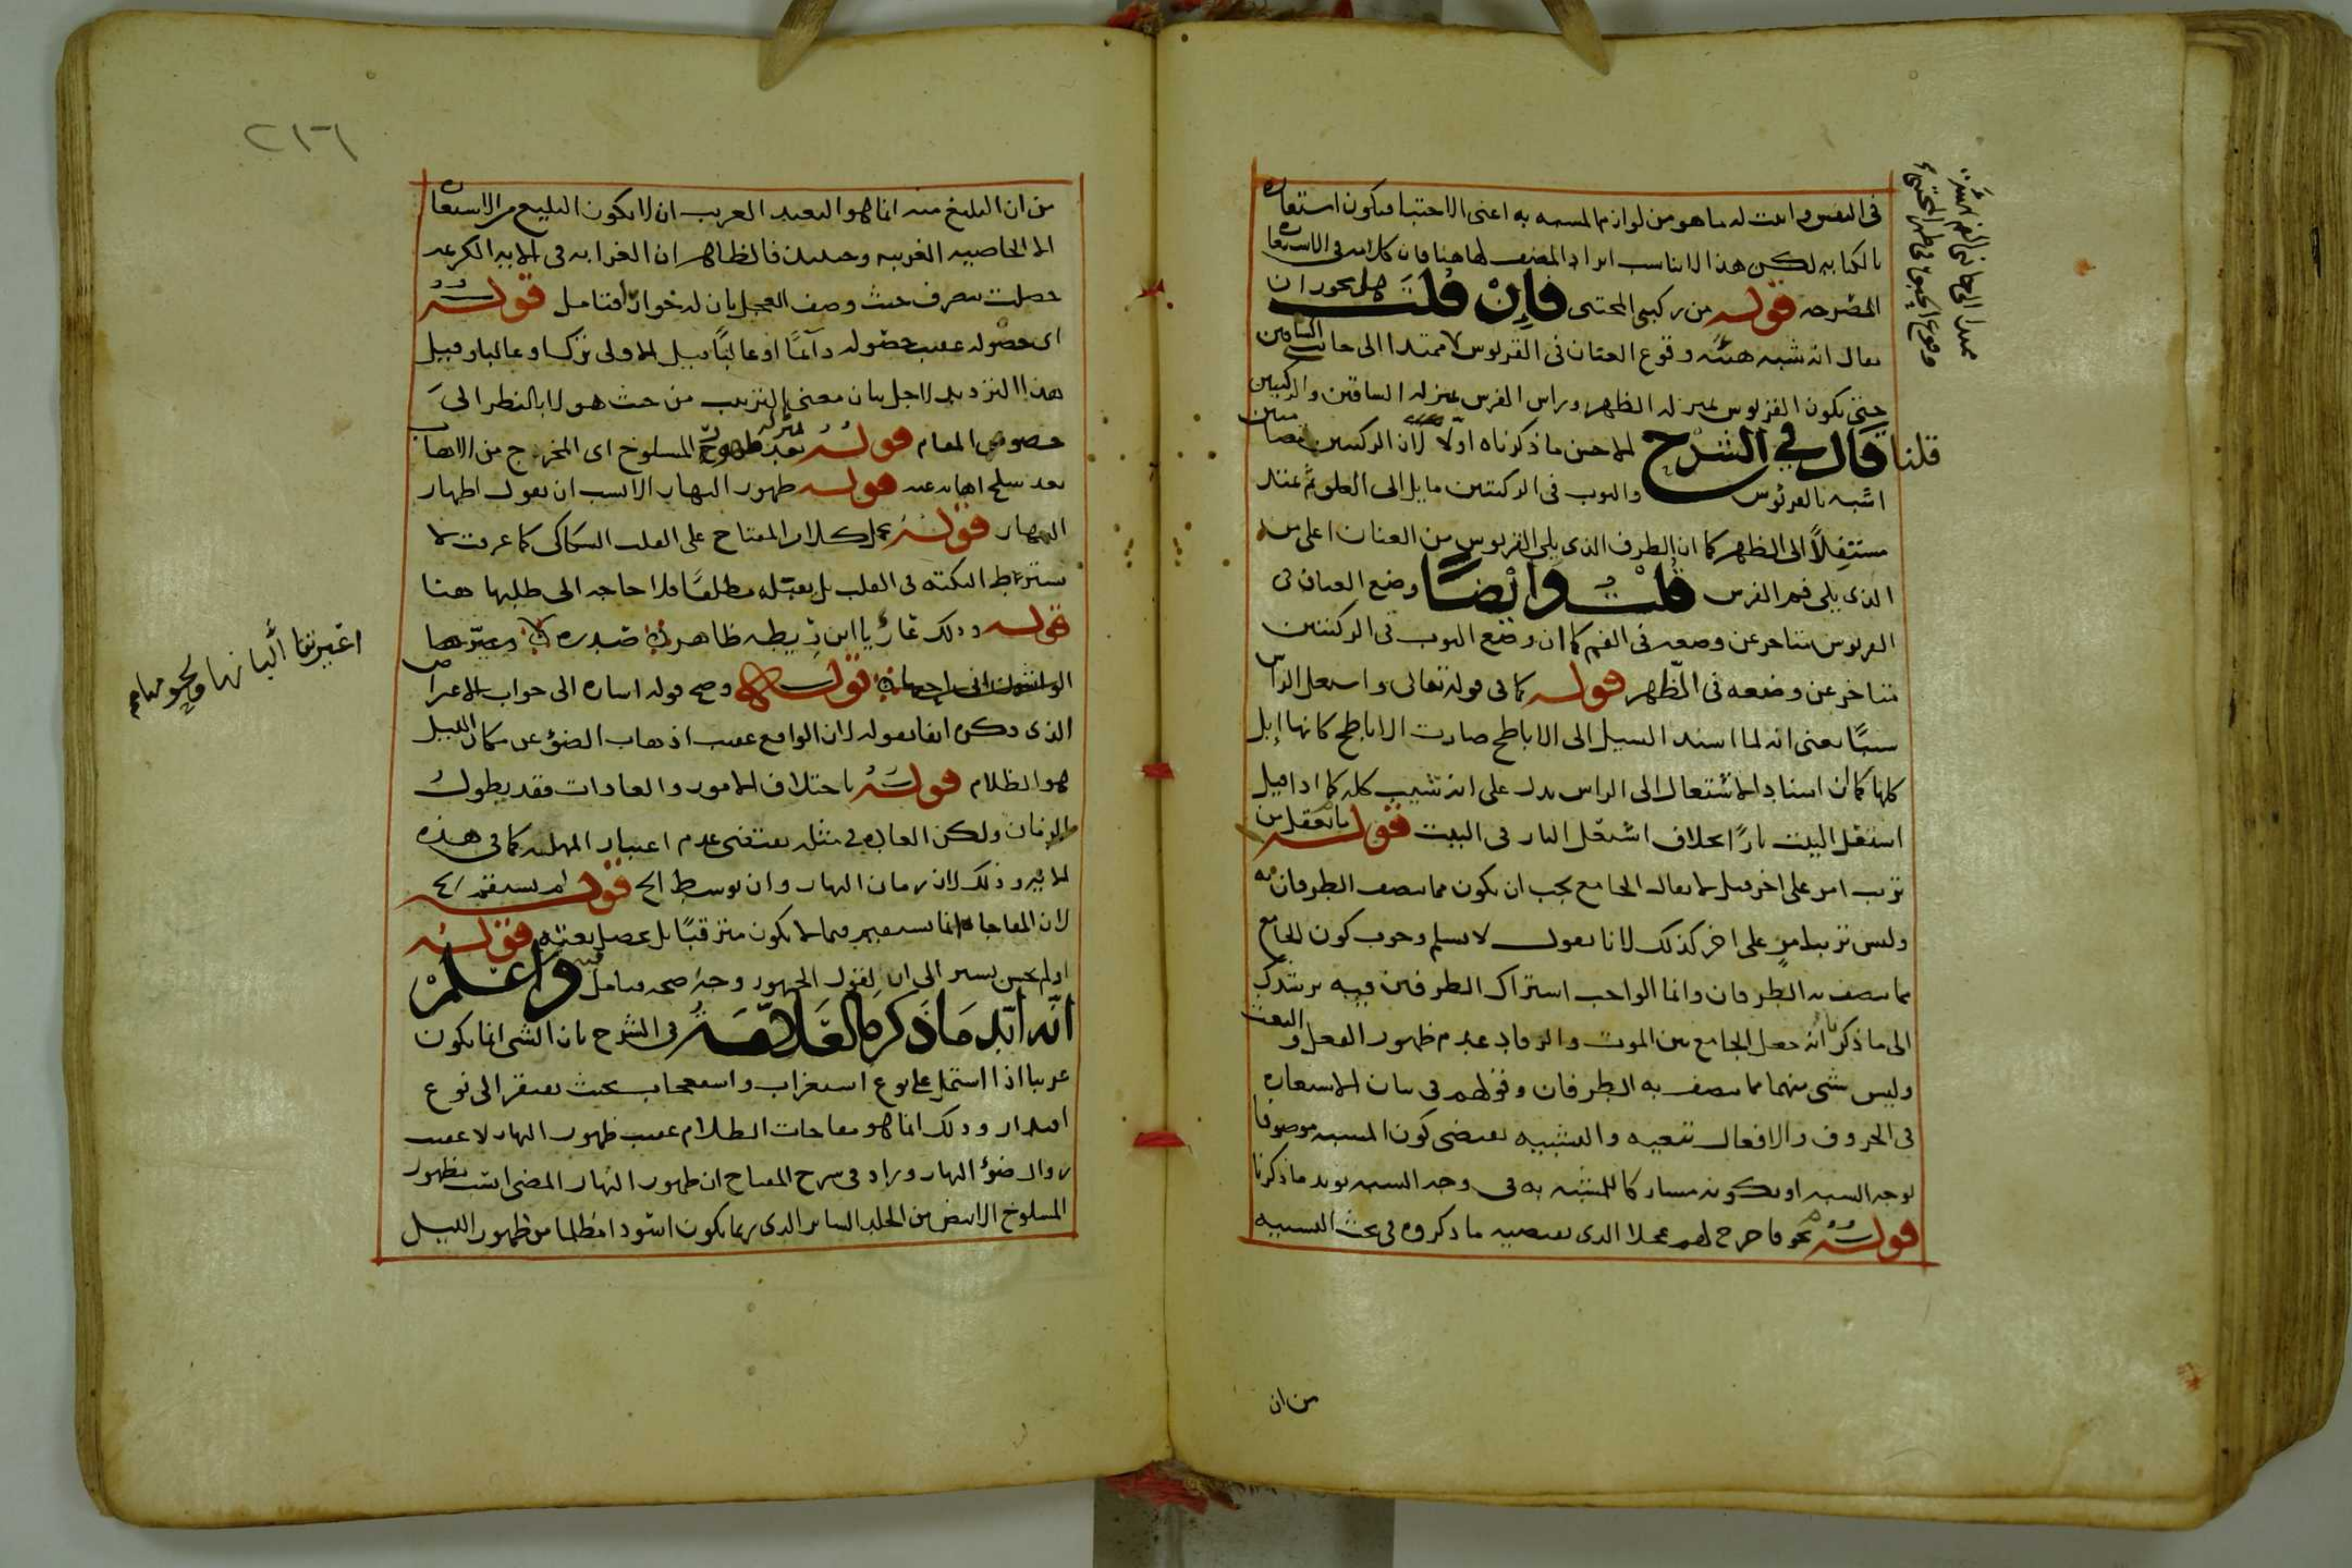 في النفس واثبت له ما هو من لوازم المشبه به اعنى الاحتباء فيكون استعارة
بالكناية لكن هذا لا يناسب ايراد المصنف لها هنا فان كلامه في الاستعارة
المصرحة قوله من ركبتي المحتبى فإن قلت هل يجوز ان
يقال انه شبه هيئة وقوع العنان في القربوس ممتدا الى جانب
حتى يكون القربوس بمنزلة الظهر وراس الفرس بمنزلة الساقين والركبتين
قلنا قال في الشرح الاحسن ما ذكرناه اولا لان الركبتين
اشبه بالقربوس والثوب في الركبتين مايل الى العلو ثم يمتد
مستفلا الى الظهر كما ان الطرف الذي يلي القربوس من العنان اعلى من
الذي يلي فم الفرس قلت وايضا وضع العنان في
القربوس متاخر عن وضعه في الفم كما ان وضع الثوب في الركبتين
متاخر عن وضعه في الظهر قوله كما في قوله تعالى واشتعل الراس
شيبا يعنى انه لما اسند السيل الى الاباطح صارت الاباطح كانها ابل
كلها كما ان اسناد الاشتعال الى الراس يدل على انه شيب كله كما اذا قيل
اشتعل البيت نارا بخلاف اشتعل النار في البيت قوله ما يعقل من
ترتب امر على اخر قيل لا يقال الجامع يجب ان يكون مما يتصف الطرفان به
وليس ترتب امر على اخر كذلك لانا نقول لا نسلم وجوب كون الجامع
مما يتصف به الطرفان وانما الواجب اشتراك الطرفين فيه يرشدك
الى ما ذكرنا انه جعل الجامع بين الموت والرقاد عدم ظهور الفعل والبعث
وليس شى منهما مما يتصف به الطرفان وقولهم في بيان الاستعارة
في الحروف والافعال تبعية والتشبيه يقتضى كون المشبه موصوفا
لوجه الشبه او بكونه مشاركا للمشبه به في وجه الشبه يويد ما ذكرنا
قوله نحو فاخرج لهم عجلا الذي يقتضيه ما ذكروه في بحث التشبيه
من ان
٢١٦
من ان البليغ منه انما هو البعيد الغريب ان لا يكون البليغ من الاستعارة
الا الخاصية الغريبة وحينئذ فالظاهر ان الغرابة في الاية الكريمة
حصلت بتصرف حيث وصف العجل بان له خوار فتامل قوله
اى حصوله عقيب حصوله دائما او غالبا قيل الاولى ترك او غالبا وقيل
هذا الترديد لاجل بيان معنى الترتب من حيث هو لا بالنظر الى
خصوص المقام قوله بمنزلة ظهور المسلوخ اى المخرج من الاهاب
بعد سلخ اهابه عنه قوله ظهور النهار الانسب ان يقول اظهار
النهار قوله حمل كلام المفتاح على القلب السكاكى كما عرفت لا
يشترط النكته في القلب بل يقبله مطلقا فلا حاجة الى طلبها هنا
قوله وذلك عار يا ابن ريطة ظاهر
وصح قوله اشارة الى جواب الاعتراض
الذي ذكره انفا بقوله لان الواقع عقيب اذهاب الضوء عن مكان الليل
هو الظلام قوله باختلاف الامور والعادات فقد يطول
الزمان ولكن العادة في مثله يقتضى عدم اعتبار المهلة كما في هذه
الاية وذلك لان زمان النهار وان توسط الخ قوله لم يستقم
لان المفاجاة انما يستقيم فيما لا يكون مترقبا بل يحصل بغتة قوله
او لم يحسن يشير الى ان لقول الجمهور وجه صحة فتامل واعلم
انه ايد ما ذكره العلامة في الشرح بان الشى انما يكون
غريبا اذا اشتمل على نوع استغراب واستعجاب بحيث يفتقر الى نوع
اقتدار وذلك انما هو مفاجات الظلام عقيب ظهور النهار لا عقيب
زوال ضوء النهار وزاد في شرح المفتاح ان ظهور النهار المضى اشبه بظهور
المسلوخ الابيض من الجلد الساتر الذي ربما يكون اسود امظلما من ظهور الليل